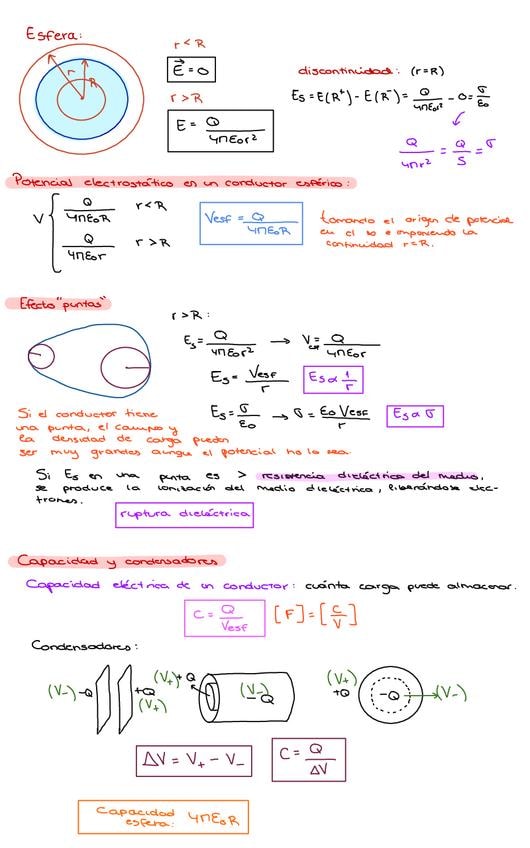 Esfera:
r
R
r < R
E⃗ = 0
r > R
E = Q / 4πε₀r²
discontinuidad: (r=R)
Es = E(R⁺) - E(R⁻) = Q / 4πε₀r² - 0 = σ / ε₀
Q / 4πr² = Q / S = σ
Potencial electrostático en un conductor esférico:
V { Q / 4πε₀R r < R
Q / 4πε₀r r > R
Vesf = Q / 4πε₀R
tomando el origen de potencial
en el ∞ e imponiendo la
continuidad r=R.
Efecto "puntas"
r > R:
Es = Q / 4πε₀r² → Vesf = Q / 4πε₀r
Es = Vesf / r Es ∝ 1 / r
Es = σ / ε₀ → σ = ε₀ Vesf / r Es ∝ σ
Si el conductor tiene
una punta, el campo y
la densidad de carga pueden
ser muy grandes aunque el potencial no lo sea.
Si Es en una punta es > resistencia dieléctrica del medio,
se produce la ionización del medio dieléctrica, liberándose elec-
trones.
ruptura dieléctrica
Capacidad y condensadores
Capacidad eléctrica de un conductor: cuánta carga puede almacenar.
C = Q / Vesf [F] = [C / V]
Condensadores:
(V-) -Q +Q (V+)
(V+) +Q (V-) -Q
(V+) +Q -Q (V-)
ΔV = V₊ - V₋
C = Q / ΔV
Capacidad
esfera: 4πε₀R